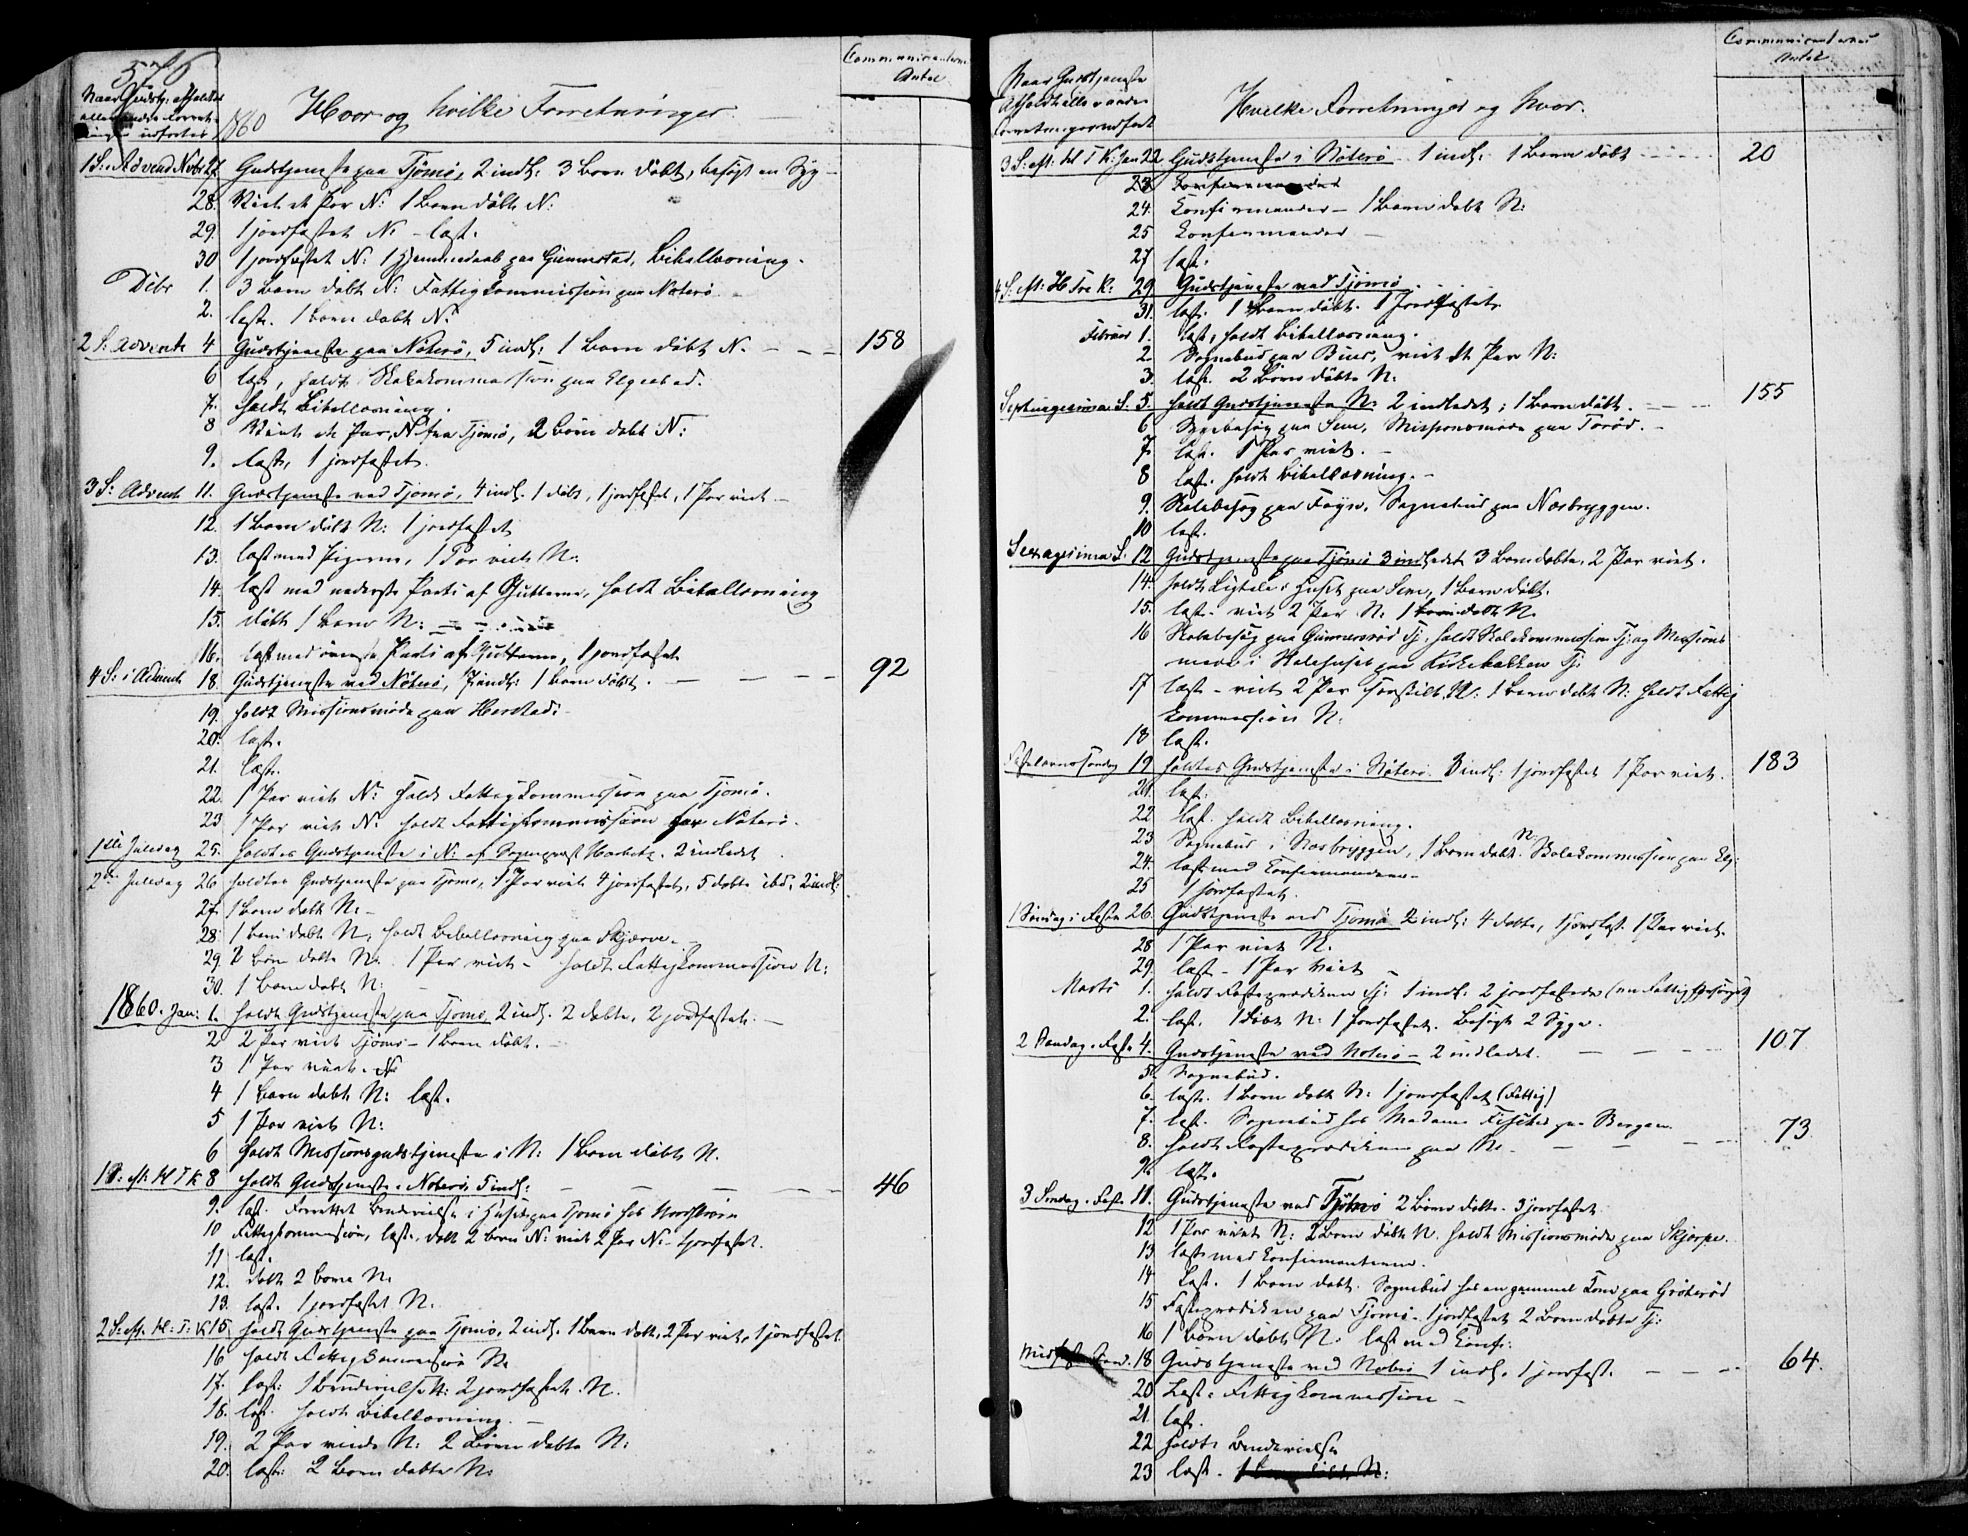 576
Communicanternes
Antal
Naar Gudstj. afholdtes
eller andre Forret-
ninger udførtes
1860 Hvor og hvilke Forretninger
1 S: Advend Nobr 27. Gudstjeneste paa Tjømø, 2 indl: 3 Børn døbt, besøgt en Syg -
28. Viet et Par N: 1 Barn døbt N:
29. 1 jordfæstet N: - læst.
30 1 jordfæstet N: 1 Hjemmedaab paa Gunnestad, Bibellæsning.
Debr 1. 3 Børn døbt N: Fattigkommission paa Nøterø.
2. læst. 1 Barn døbt N:
2 S. Advent 4 Gudstjeneste paa Nøterø, 5 indl: 1 Barn døbt N. - - - 158
6 læst, holdt Skolekommission paa Elgestad.
7. holdt Bibellæsning.
8 Viet et Par, N fra Tjømø, 2 Børn døbt N:
9. læst, 1 jordfæstet.
3 S: Advent 11. Gudstjeneste ved Tjømø, 4 indl. 1 døbt, 1 jordfæstet, 1 Par viet -
12. 1 Barn døbt N: 1 jordfæstet
13. læst med Pigerne, 1 Par viet N:
14. læst med nederste Parti af Gutterne, holdt Bibellæsning
15. døbt 1 Barn N:
16. læst med øverste Parti af Gutterne, 1 jordfæstet
4 S: i Advent 18. Gudstjeneste ved Nøterø, 7 indl: 1 Barn døbt. - - - 92
19. holdt Missionsmøde paa Herstad:
20. læst.
21. læst.
22. 1 Par viet N: holdt Fattigkommission paa Tjømø.
23 1 Par viet N: holdt Fattigkommission paa Nøterø.
1ste Juledag 25. holdtes Gudstjeneste i N: af Sogneprest Harbitz. 2 indledet
2den Juledag 26 holdtes Gudstjeneste paa Tjømø, 1 Par viet 4 jordfæstet, 5 døbte ibd, 2 indl:
27. 1 Barn døbt N: -
28. 1 Barn døbt N: holdt Bibellæsning paa Skjærve.
29. 2 Børn døbte N: 1 Par viet - holdt Fattigkommission N:
30. 1 Barn døbt N:
1860. Jan: 1. holdt Gudstjeneste paa Tjømø, 2 indl. 2 døbte, 2 jordfæstet. -
2 2 Par viet Tjømø - 1 Barn døbt. -
3 1 Par viet. N:
4 1 Barn døbt N: læst.
5 1 Par viet N:
6 holdt Missionsgudstjeneste i N: 1 Barn døbt N.
1 S: eft. H T K 8 holdt Gudstjeneste i Nøterø, 5 indl: - - - 46
9. læst. Forrettet Berettelse i Huset paa Tjømø hos
10 Fattigkommission, læst, døbt 2 Børn N: viet 2 Par N: 1 jordfæstet.
11 læst.
12. døbt 2 Børn N.
13. læst. 1 jordfæstet N.
2 S: eft. H: T: K 15. holdt Gudstjeneste paa Tjømø, 2 indl. 1 Barn døbt, 2 Par viet, 1 jordfæstet
16 holdt Fattigkommission N:
17. læst: 2 jordfæstet. N.
18. læst. holdt Bibellæsning. -
19. 2 Par viede N: 2 Børn døbte N:
20. læst: 2 Børn døbte N:
Communicanternes
Antal
Naar Gudstjeneste
Afholdt eller andre
Forretninger udført
Hvilke Forretninger og hvor.
3 S: eft: H T K: Jan 22. Gudstjeneste i Nøterø - 1 indl: 1 Barn døbt - - - 20
23. Konfirmander
24. Konfirmander - 1 Barn døbt N:
25 Konfirmander -
27 læst.
4 S: eft: H Tre K: 29 Gudstjeneste ved Tjømø.
31. læst. 1 Barn døbt. 1 Jordfæstet.
Februar 1. læst, holdt Bibellæsning.
2. Sognebud paa Buer, viet et Par N:
3. læst. 2 Børn døbte N:
Septuagesima S. 5. holdt Gudstjeneste N: 2 indledet; 1 Barn døbt. - - - 155
6 Sygebesøg paa Sem, Missionsmøde paa Torød. -
7. læst. 1 Par viet. -
8 læst. holdt Bibellæsning. -
9. Skolebesøg paa Føyn, Sognebud paa Næsbryggen.
10 læst.
Sexagesima S. 12 Gudstjeneste paa Tjømø 3 indledet 3 Børn døbte, 2 Par viet.
14. holdt Ligtale i Huset paa Sem, 1 Barn døbt.
15. læst - viet 2 Par N. 1 Barn døbt N.
16 Skolebesøg paa Gunnersrød Tj. holdt Skolekommission Tj: og Missions
møde i Skolehuset paa Kirkebakken Tj:
17 læst - viet 2 Par N: 1 Barn døbt N: holdt Fattig
kommission N:
18 læst.
Fastelavnssøndag 19 holdtes Gudstjeneste i Nøterø. 3 indl: 1 jordfæstet 1 Par viet. 183
21. læst.
22 læst. holdt Bibellæsning.
23 Sognebud i Næsbryggen, 1 Barn døbt N. Skolekommission paa Elg:
24. læst med Konfirmanderne -
25 1 jordfæstet.
1 Søndag i Faste 26. Gudstjeneste ved Tjømø 2 indl: 4 døbte, 1 jordfæst. 1 Par viet.
28. 1 Par viet N.
29. læst - 1 Par viet -
Marts 1. holdt Fasteprædiken Tj: 1 indl: 2 jordfæstede
2. læst. 1 døbt N: 1 jordfæstet. Besøgt 2 Syge.
2 Søndag i Faste 4. Gudstjeneste ved Nøterø - 2 indledet. - - - 107
5. Sognebud.
6. læst. 1 Barn døbt N: 1 jordfæstet (Fattig)
7. læst. Sognebud hos Madame Fischer paa Bergan.
8. holdt Fasteprædiken paa N: - - - 73
9. læst.
3 Søndag i Faste 11. Gudstjeneste ved Tjømø 2 Børn døbte. 3 jordfæstet.
12 1 Par viet N: 2 Børn døbte N. holdt Missionsmøde paa Skjerpe.
13. læst med Konfirmanterne.
14 Læst. 1 Barn døbt. Sognebud hos en gammel Kone paa Grøterød
15 Fasteprædiken paa Tjømø. 1 jordfæstet 2 Børn døbte Tj:
16 1 Barn døbt N: læst med Konf:
Midfaste Sønd. 18 Gudstjeneste ved Nøterø 1 indl. 1 jordfæst. - - - 64.
20 Læst. Fattigkommission -
21. læst.
22 holdt
23 læst. 1 Barn døbt N: